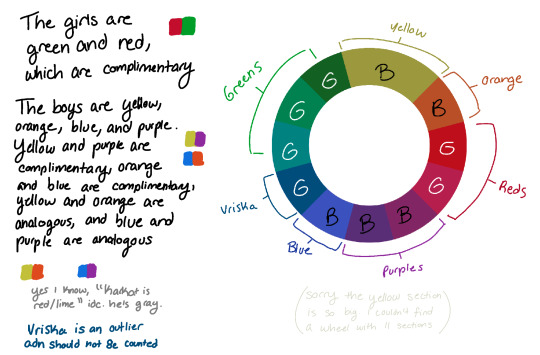 The girls are
green and red,
which are complimentary
The boys are yellow,
orange, blue, and purple.
Yellow and purple are
complimentary, orange
and blue are complimentary,
yellow and orange are
analogous, and blue and
purple are analogous
yes I know, "karkat is
red/lime" idc. he's gray.
Vriska is an outlier
adn should not be counted
Yellow
Orange
Reds
Purples
Blue
Vriska
Greens
B
B
G
G
B
B
B
G
G
G
G
(sorry the yellow section
is so big. I couldn't find
a wheel with 11 sections)